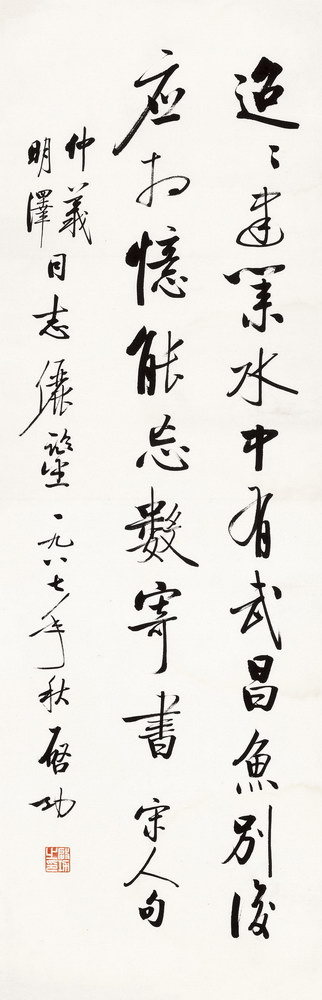 迢〻建業水中有武昌魚別後
應相憶能忘數寄書 宋人句
仲義
明澤
同志儷鑒一九八七年秋啓功